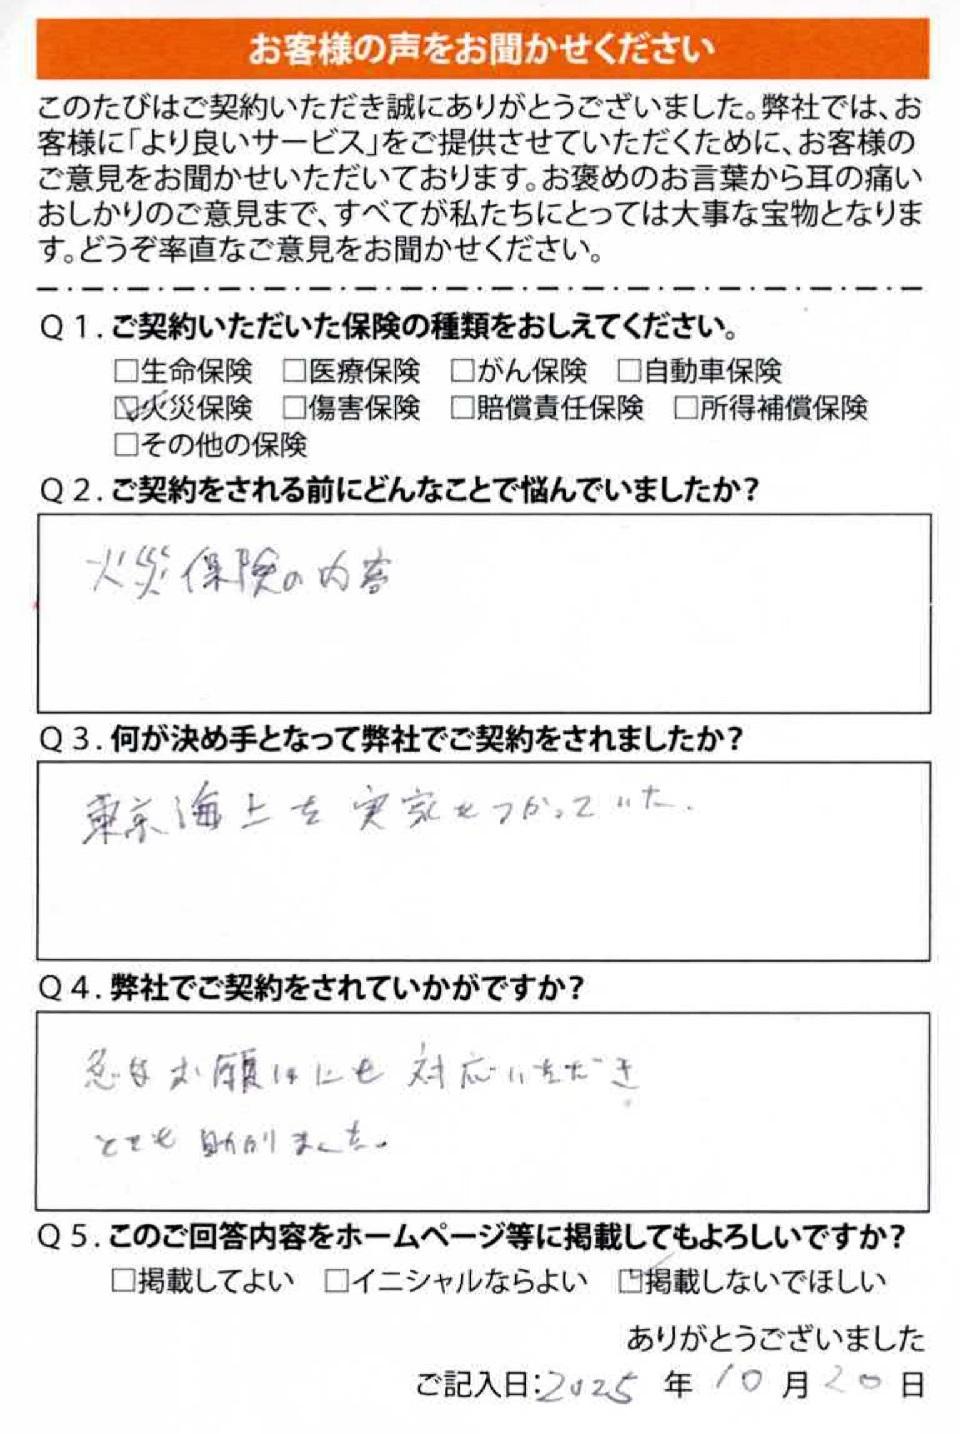 お客様の声をお聞かせください
このたびはご契約いただき誠にありがとうございました。弊社では、お
客様に「より良いサービス」をご提供させていただくために、お客様の
ご意見をお聞かせいただいております。お褒めのお言葉から耳の痛い
おしかりのご意見まで、すべてが私たちにとっては大事な宝物となりま
す。どうぞ率直なご意見をお聞かせください。
Q1.ご契約いただいた保険の種類をおしえてください。
□生命保険 □医療保険 □がん保険 □自動車保険
☑火災保険 □傷害保険 □賠償責任保険 □所得補償保険
□その他の保険
Q2.ご契約をされる前にどんなことで悩んでいましたか?
火災保険の内容
Q3.何が決め手となって弊社でご契約をされましたか?
東京海上を実家もつかっていた.
Q4.弊社でご契約をされていかがですか?
急なお願いにも対応いただき
とても助かりました。
Q5.このご回答内容をホームページ等に掲載してもよろしいですか?
□掲載してよい □イニシャルならよい ☑掲載しないでほしい
ありがとうございました
ご記入日:2025年10月20日